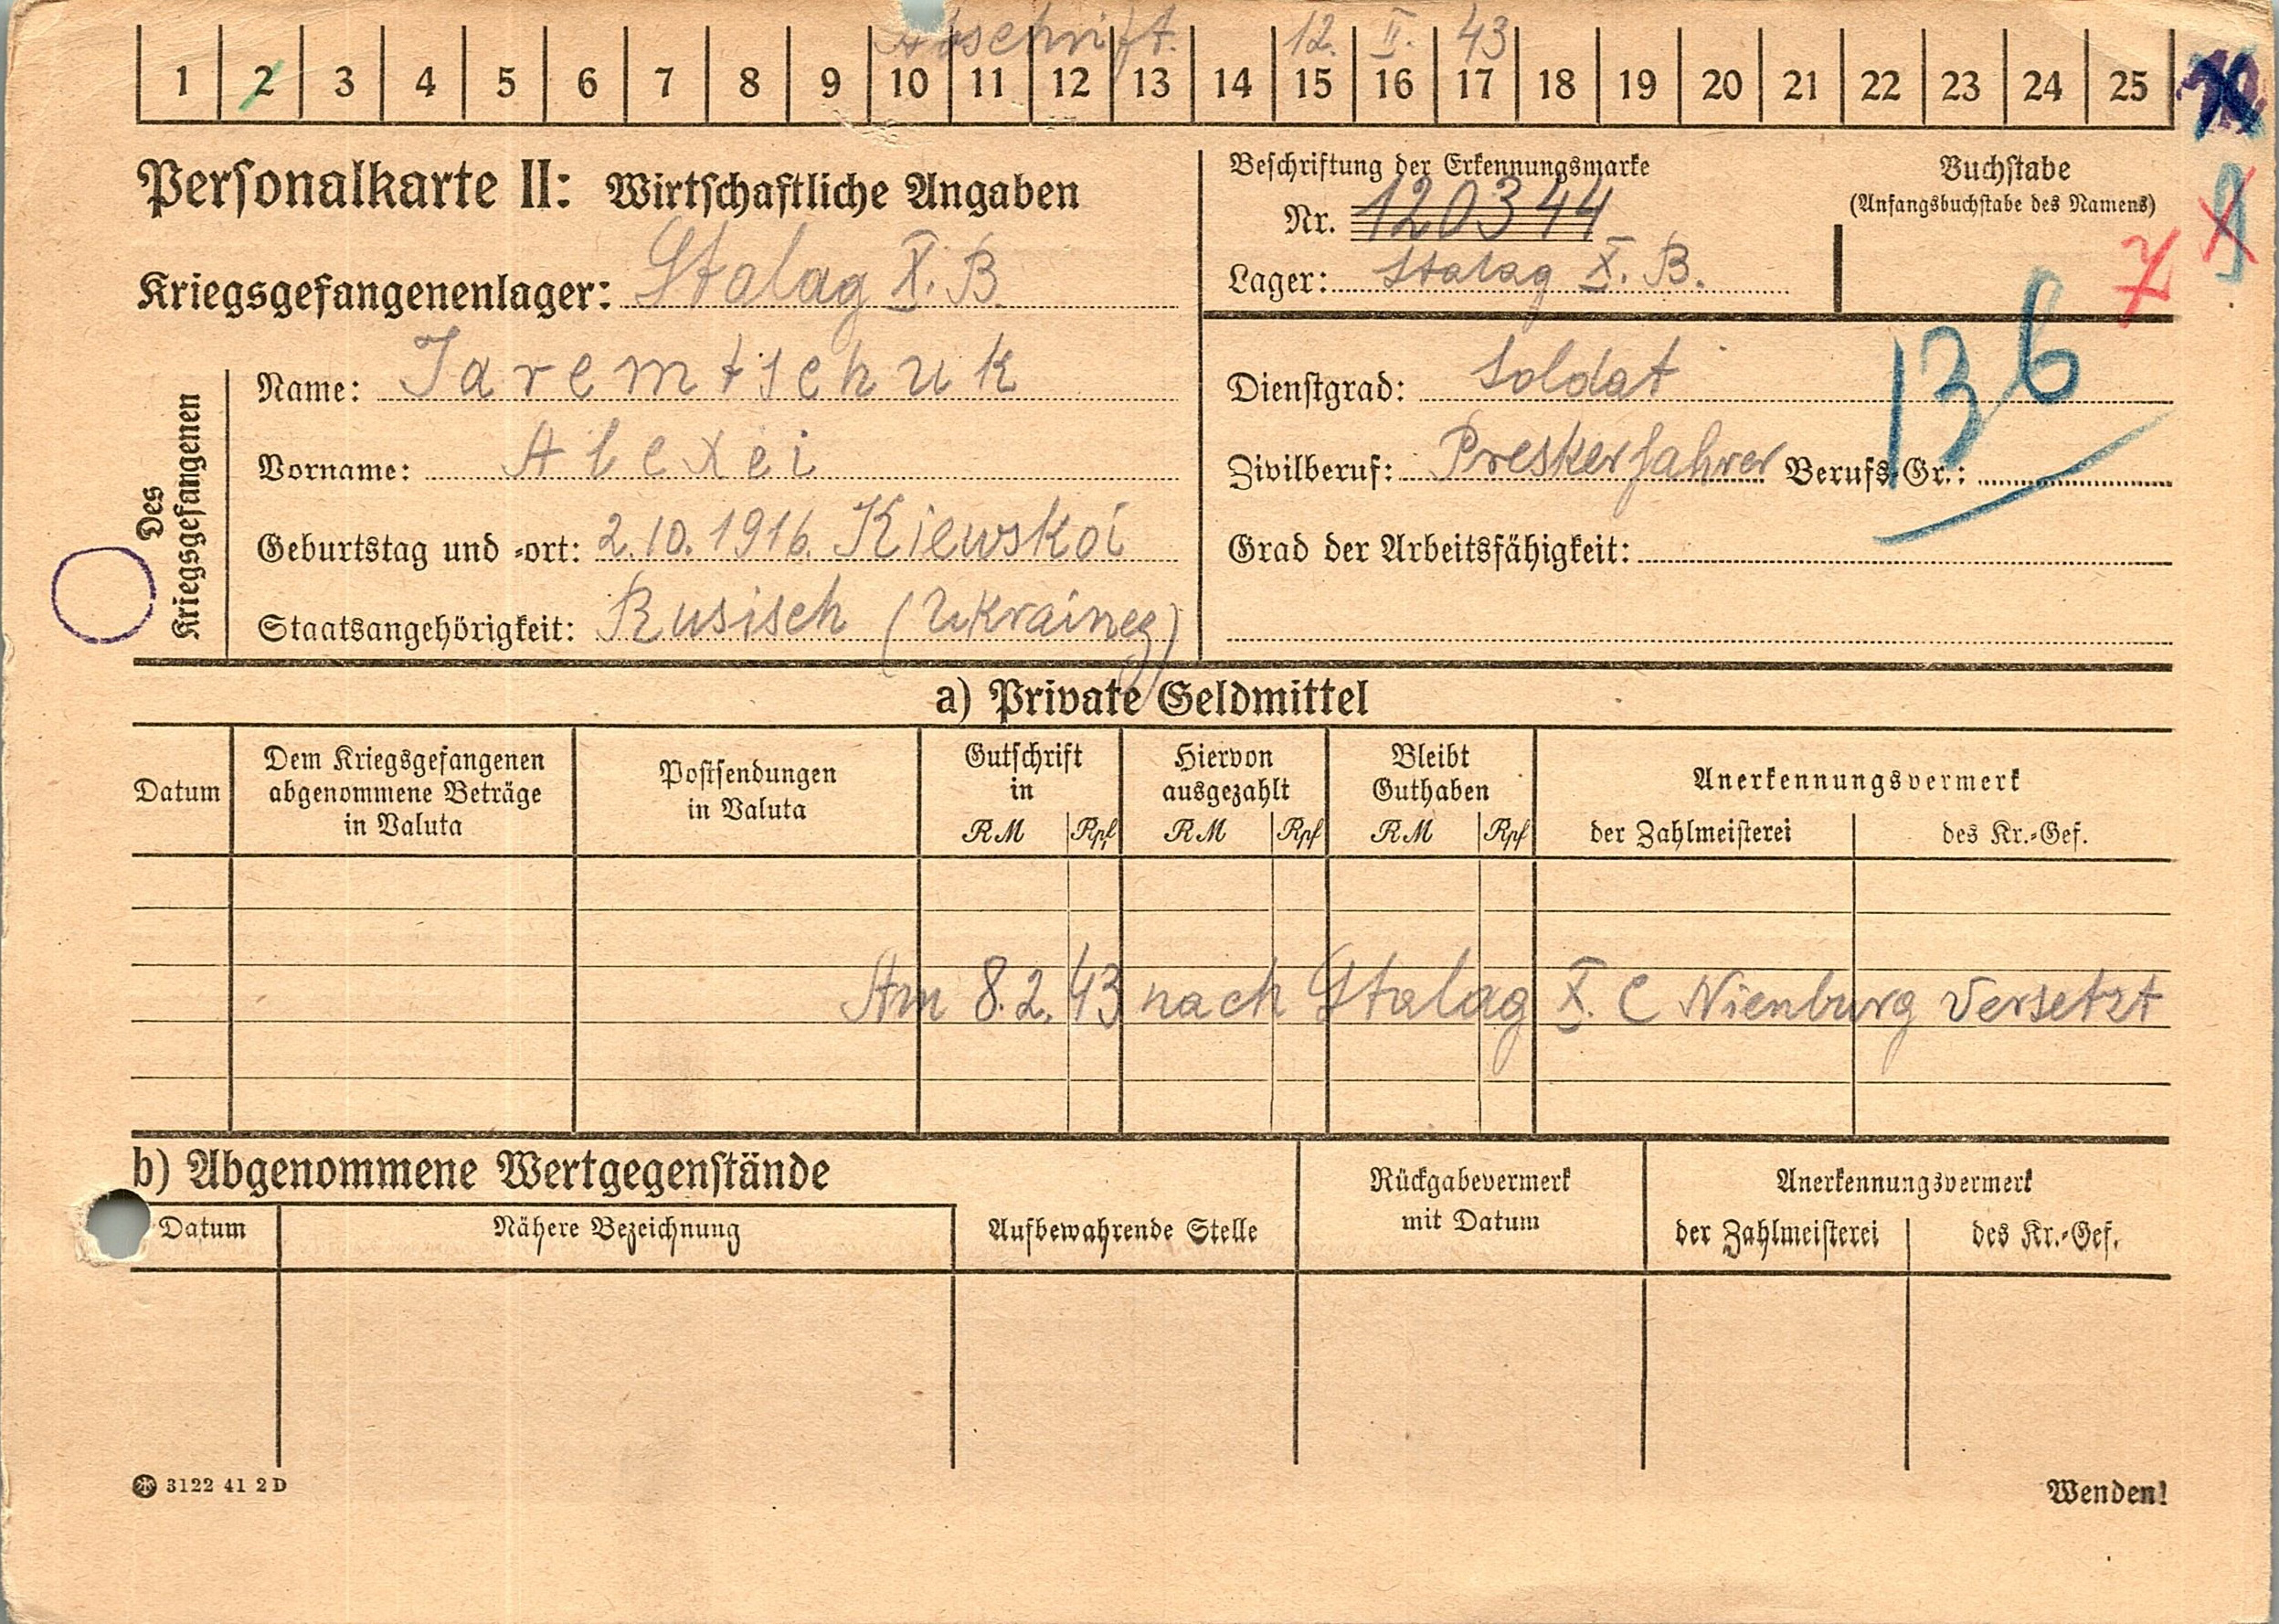 Abschrift. 12. II. 43
1 2 3 4 5 6 7 8 9 10 11 12 13 14 15 16 17 18 19 20 21 22 23 24 25
Personalkarte II: Wirtschaftliche Angaben
Kriegsgefangenenlager: Stalag X. B
Beschriftung der Erkennungsmarke
Nr. 120344
Lager: Stalag X. B.
Buchstabe
(Anfangsbuchstabe des Namens)
Des Kriegsgefangenen
Name: Jaremtschuk
Vorname: Alexei
Geburtstag und -ort: 2.10.1916. Kiewskoi
Staatsangehörigkeit: Rusisch (Ukraineg)
Dienstgrad: Soldat
136
Zivilberuf: Preskerfahrer Berufs-Gr.:
Grad der Arbeitsfähigkeit:
a) Private Geldmittel
Datum
Dem Kriegsgefangenen
abgenommene Beträge
in Valuta
Postsendungen
in Valuta
Gutschrift
in
RM Rpf
Hiervon
ausgezahlt
RM Rpf
Bleibt
Guthaben
RM Rpf
Anerkennungsvermerk
der Zahlmeisterei des Kr.-Gef.
Am 8.2.43 nach Stalag X. C Nienburg versetzt
b) Abgenommene Wertgegenstände
Datum
Nähere Bezeichnung
Aufbewahrende Stelle
Rückgabevermerk
mit Datum
Anerkennungsvermerk
der Zahlmeisterei des Kr.-Gef.
3122 41 2 D
Wenden!